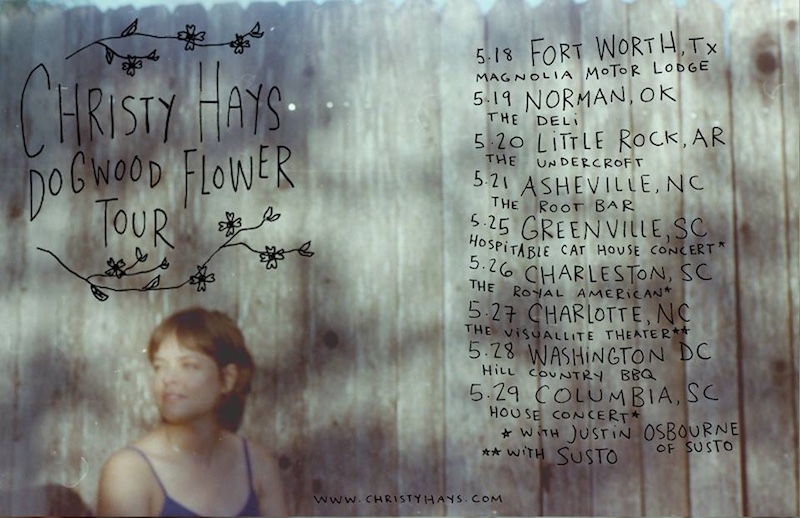 CHRISTY HAYS
DOGWOOD FLOWER
TOUR
5.18 FORT WORTH, TX
MAGNOLIA MOTOR LODGE
5.19 NORMAN, OK
THE DELI
5.20 LITTLE ROCK, AR
THE UNDERCROFT
5.21 ASHEVILLE, NC
THE ROOT BAR
5.25 GREENVILLE, SC
HOSPITABLE CAT HOUSE CONCERT*
5.26 CHARLESTON, SC
THE ROYAL AMERICAN*
5.27 CHARLOTTE, NC
THE VISUALLITE THEATER**
5.28 WASHINGTON DC
HILL COUNTRY BBQ
5.29 COLUMBIA, SC
HOUSE CONCERT*
* WITH JUSTIN OSBOURNE
OF SUSTO
** WITH SUSTO
WWW.CHRISTYHAYS.COM